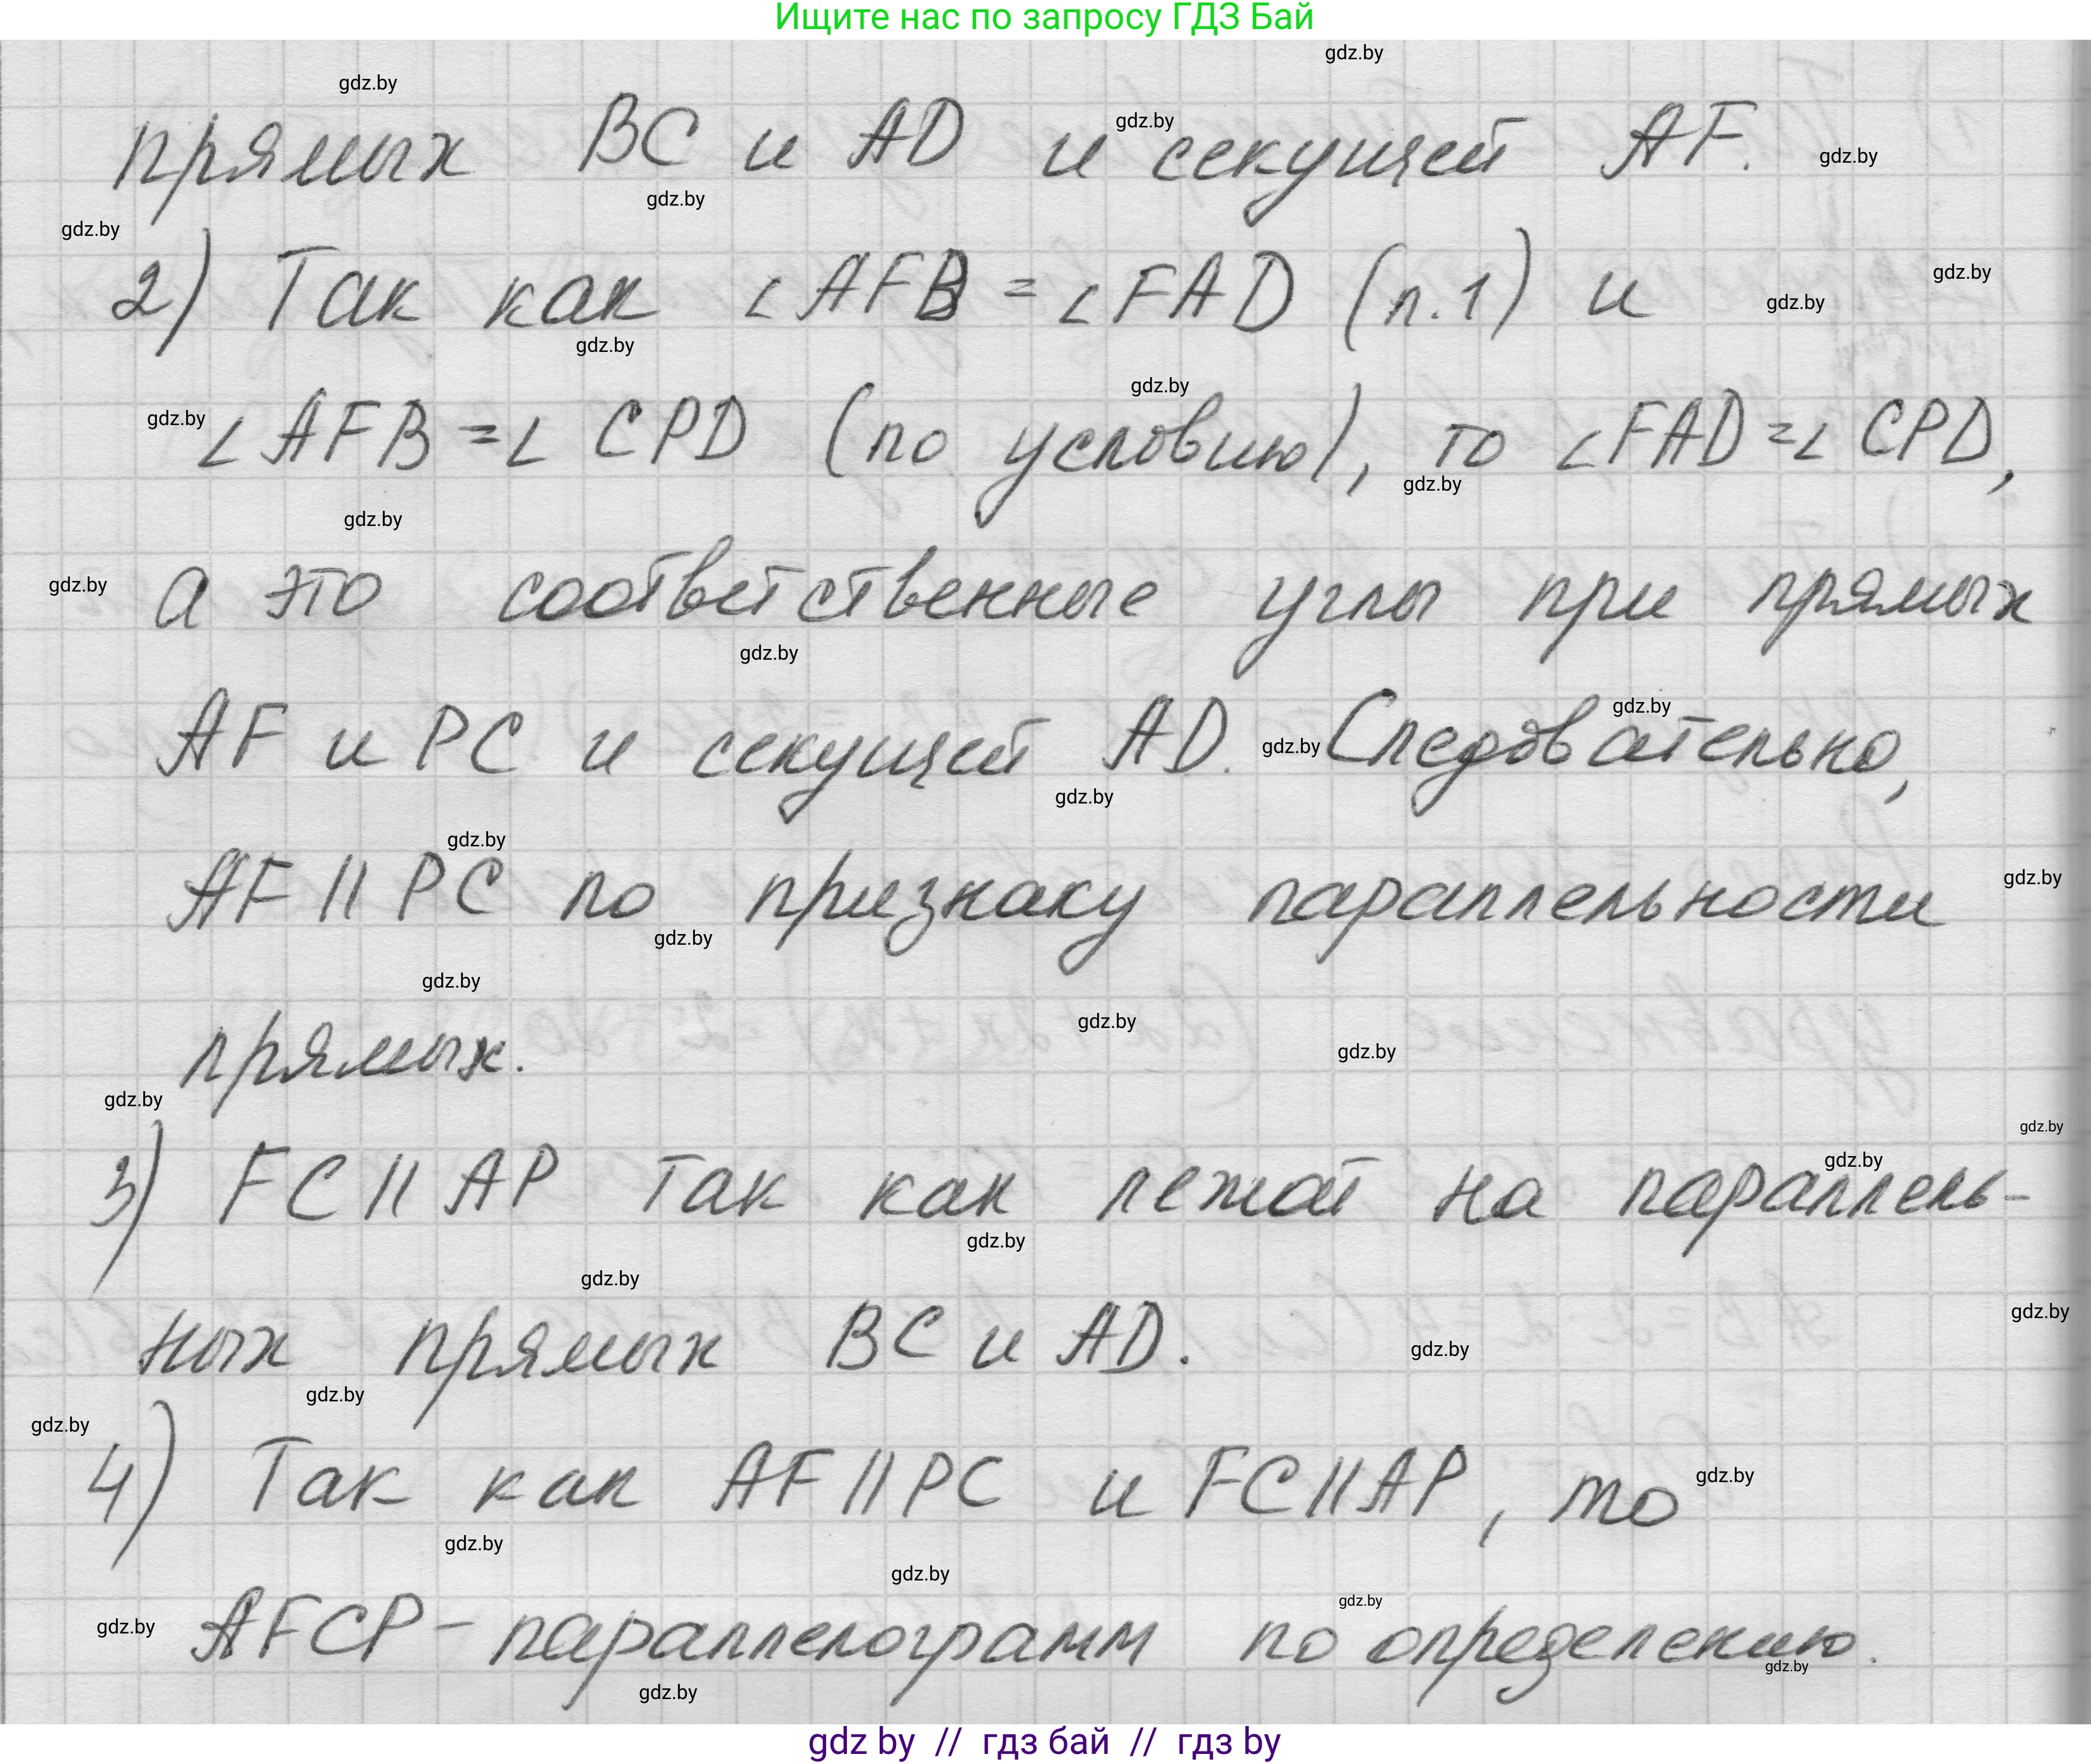 Ищите нас по запросу ГДЗ Бай
прямых BC и AD и секущей AF.
2) Так как ∠AFB = ∠FAD (п.1) и
∠AFB = ∠CPD (по условию), то ∠FAD = ∠CPD,
а это соответственные углы при прямых
AF и PC и секущей AD. Следовательно,
AF || PC по признаку параллельности
прямых.
3) FC || AP так как лежат на параллель-
ных прямых BC и AD.
4) Так как AF || PC и FC || AP, то
AFCP - параллелограмм по определению.
gdz by // гдз бай // гдз by